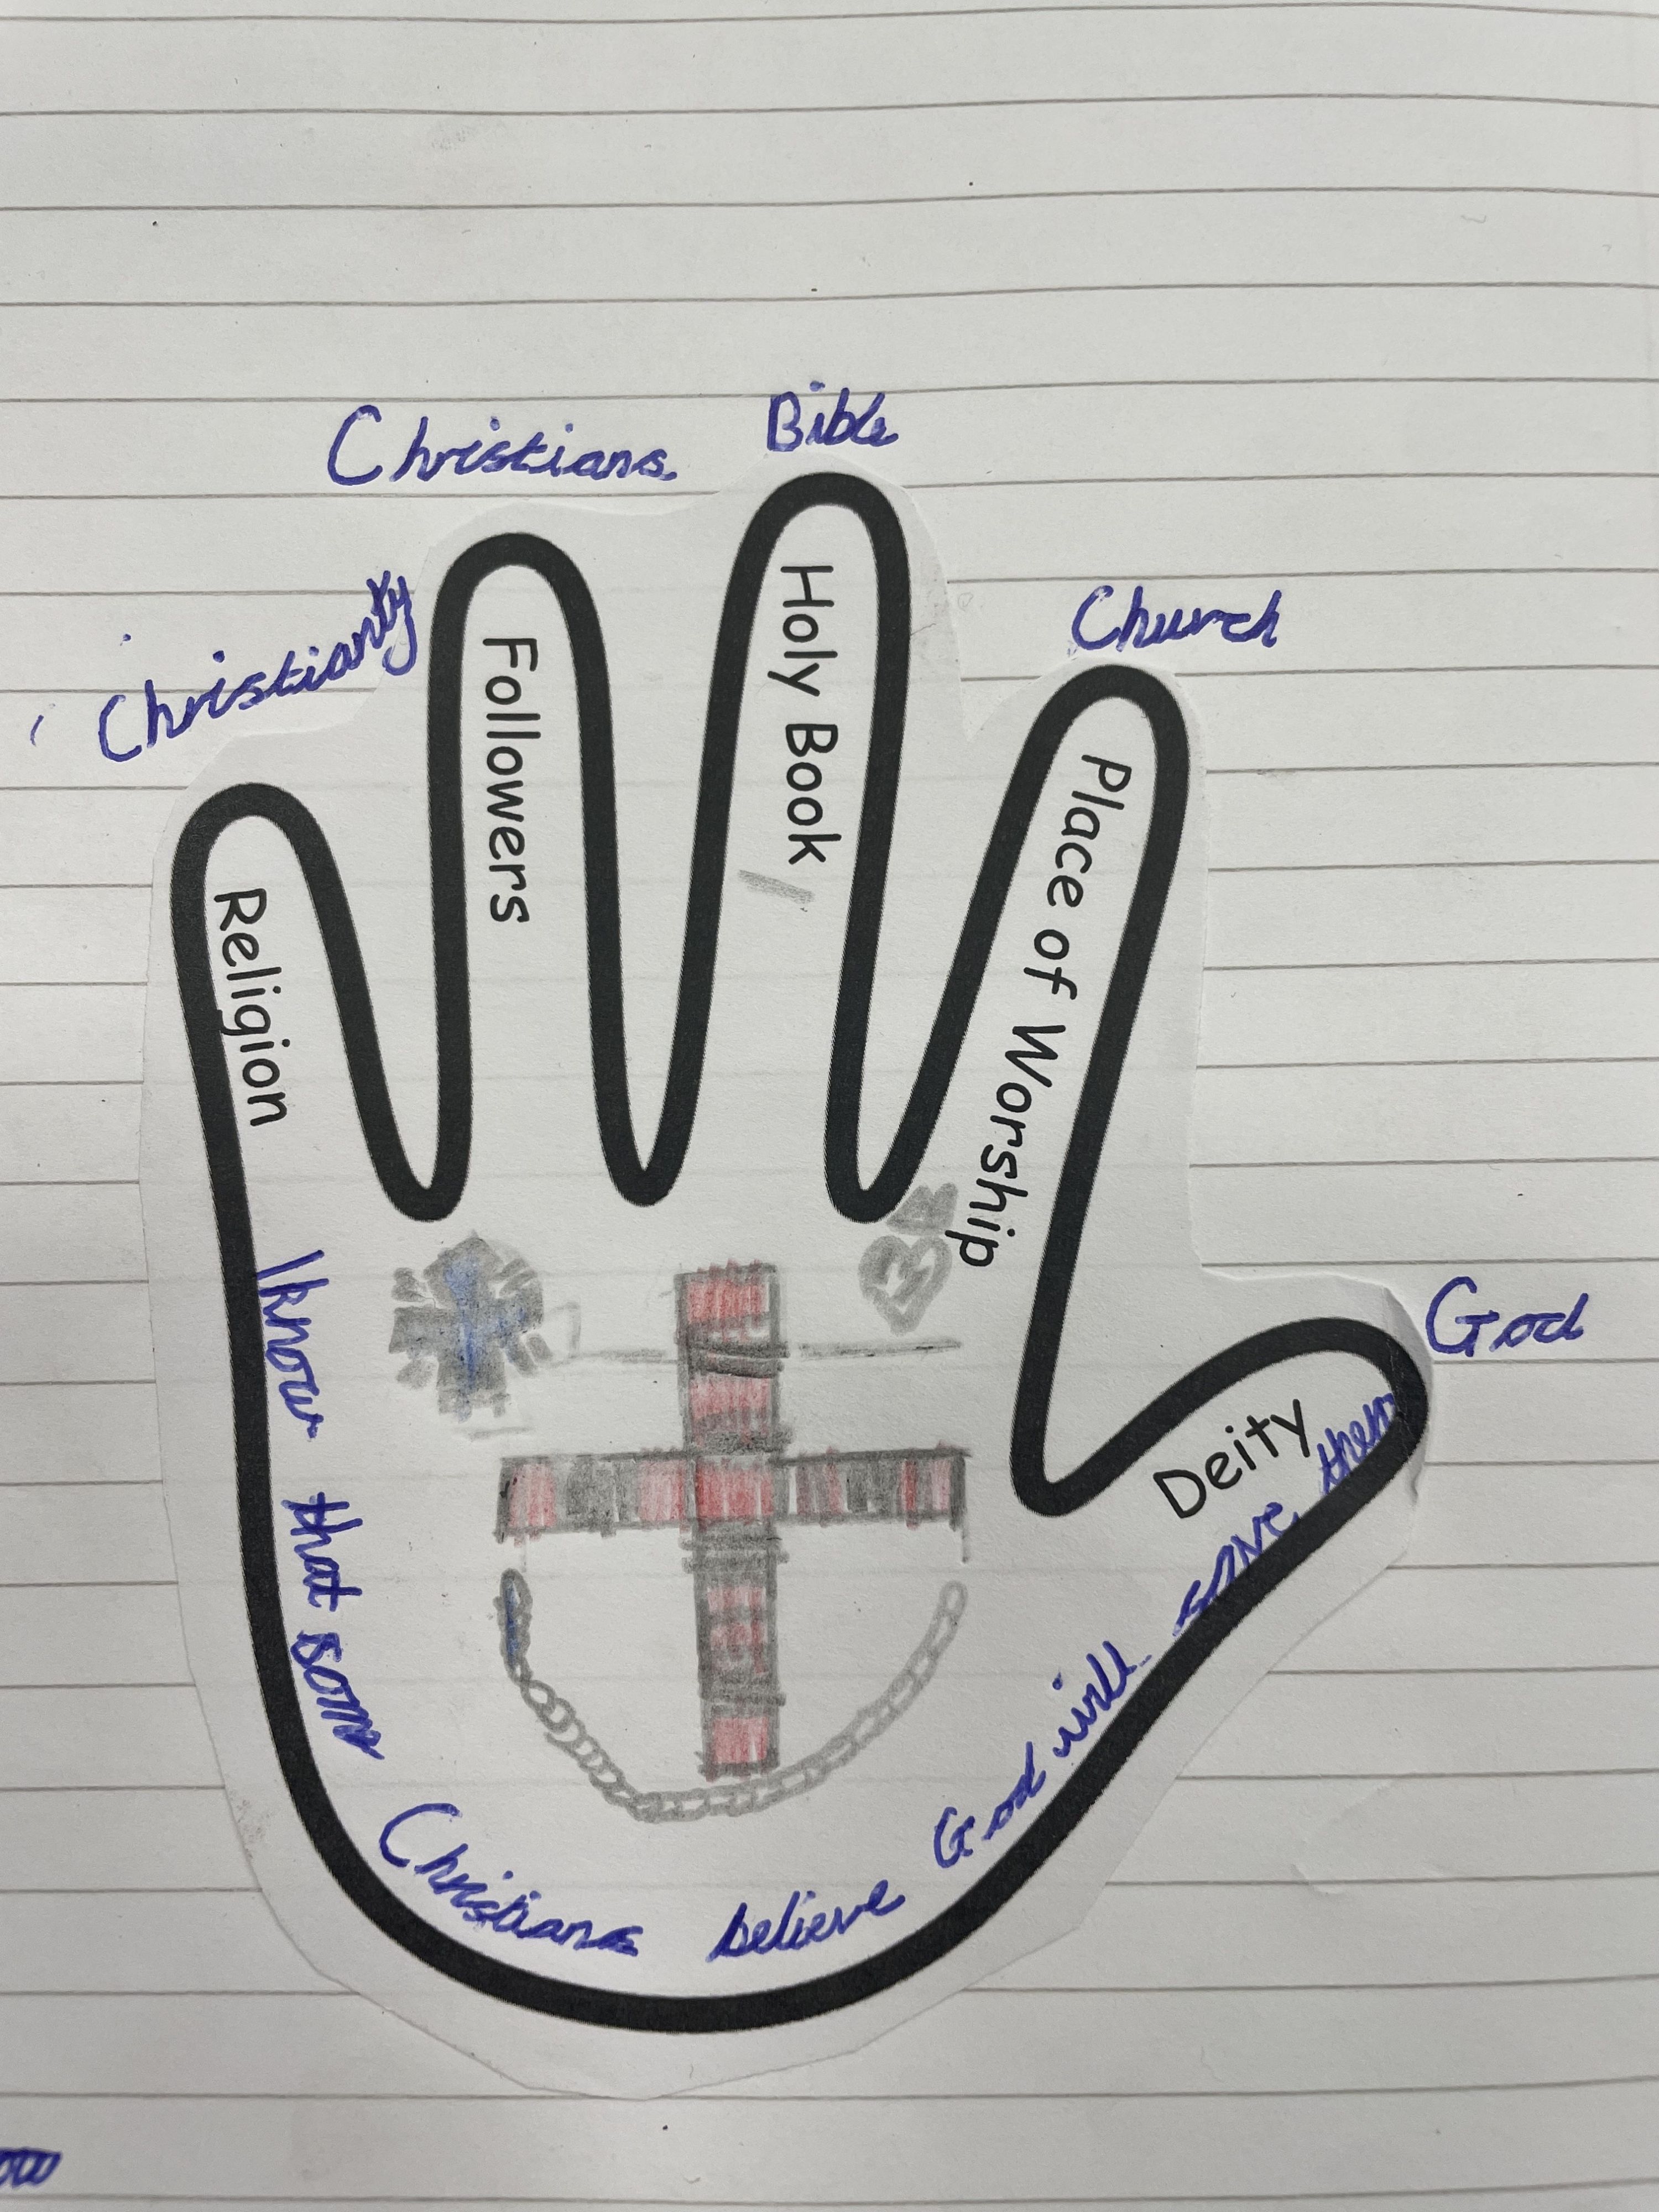 Christianity
Christians.
Bible
Church
God
Religion
Followers
Holy Book
Place of Worship
Deity
I know that some Christians believe God will save them